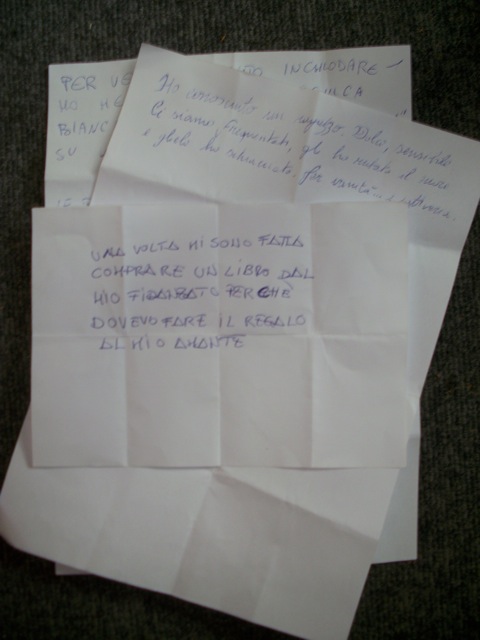 PER VE TO INCHIODARE
HO ME
BIANC
SU
Ho conosciuto un ragazzo. Dolce, sensibile.
Ci siamo frequentati, gli ho rubato il cuore
e gliel'ho per vanità
UNA VOLTA MI SONO FATTA
COMPRARE UN LIBRO DAL
MIO FIDANZATO PERCHÈ
DOVEVO FARE IL REGALO
AL MIO AMANTE